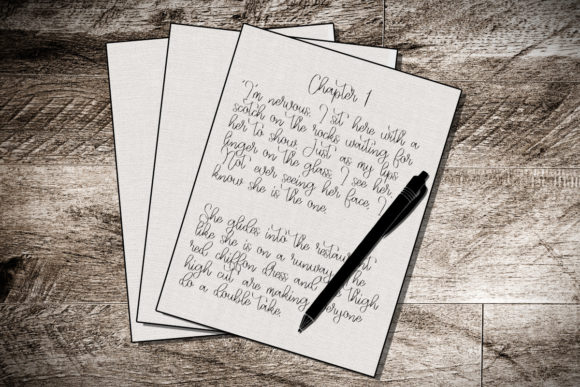 Chapter 1
"I'm nervous. I sit here with a
scotch on the rocks waiting for
her to show. Just as my lips
linger on the glass, I see her.
Not ever seeing her face, I
know she is the one.
She glides into the restaurant
like she is on a runway. The
red chiffon dress and the thigh
high cut, are making everyone
do a double take.